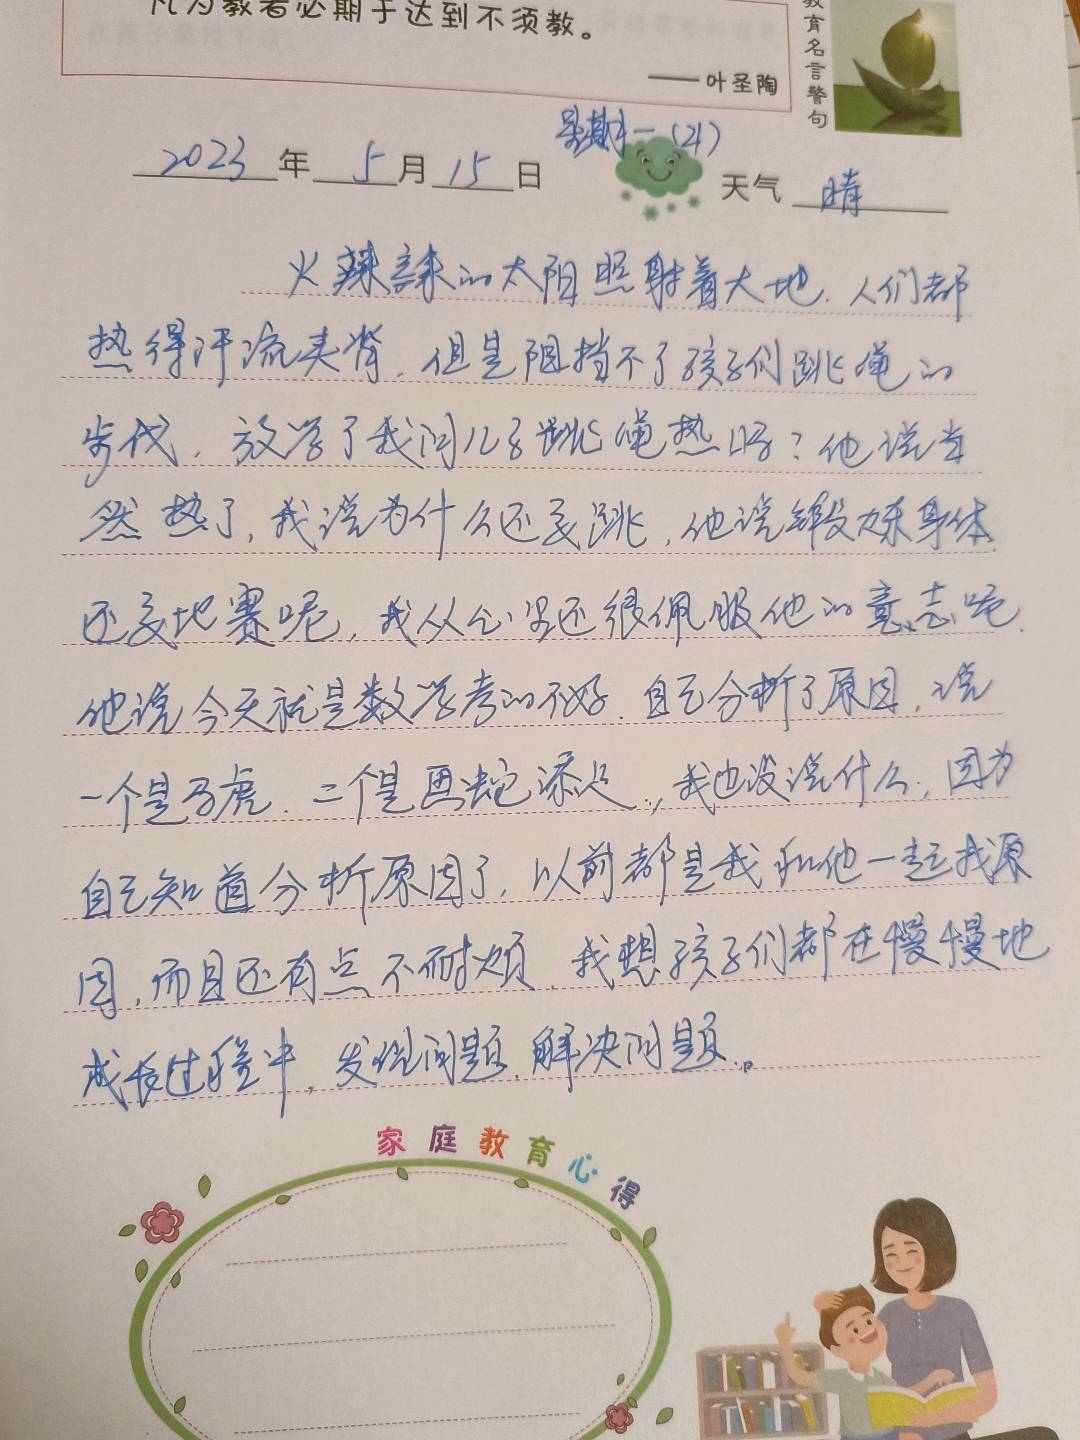 凡为教者必期于达到不须教。
——叶圣陶
教育名言警句
星期一（21）
2023年5月15日 天气 晴
火辣辣的太阳照射着大地，人们都
热得汗流夹背，但是阻挡不了孩子们跳绳的
步伐，放学了我问儿子跳绳热吗？他说当
然热了，我说为什么还要跳，他说锻炼身体
还要比赛呢，我从心里还很佩服他的意志呢，
他说今天就是数学考的不好，自己分析了原因，说
一个是马虎，二个是画蛇添足，我也没说什么，因为
自己知道分析原因了，以前都是我和他一起找原
因，而且还有点不耐烦，我想孩子们都在慢慢地
成长过程中，发现问题，解决问题。
家庭教育心得